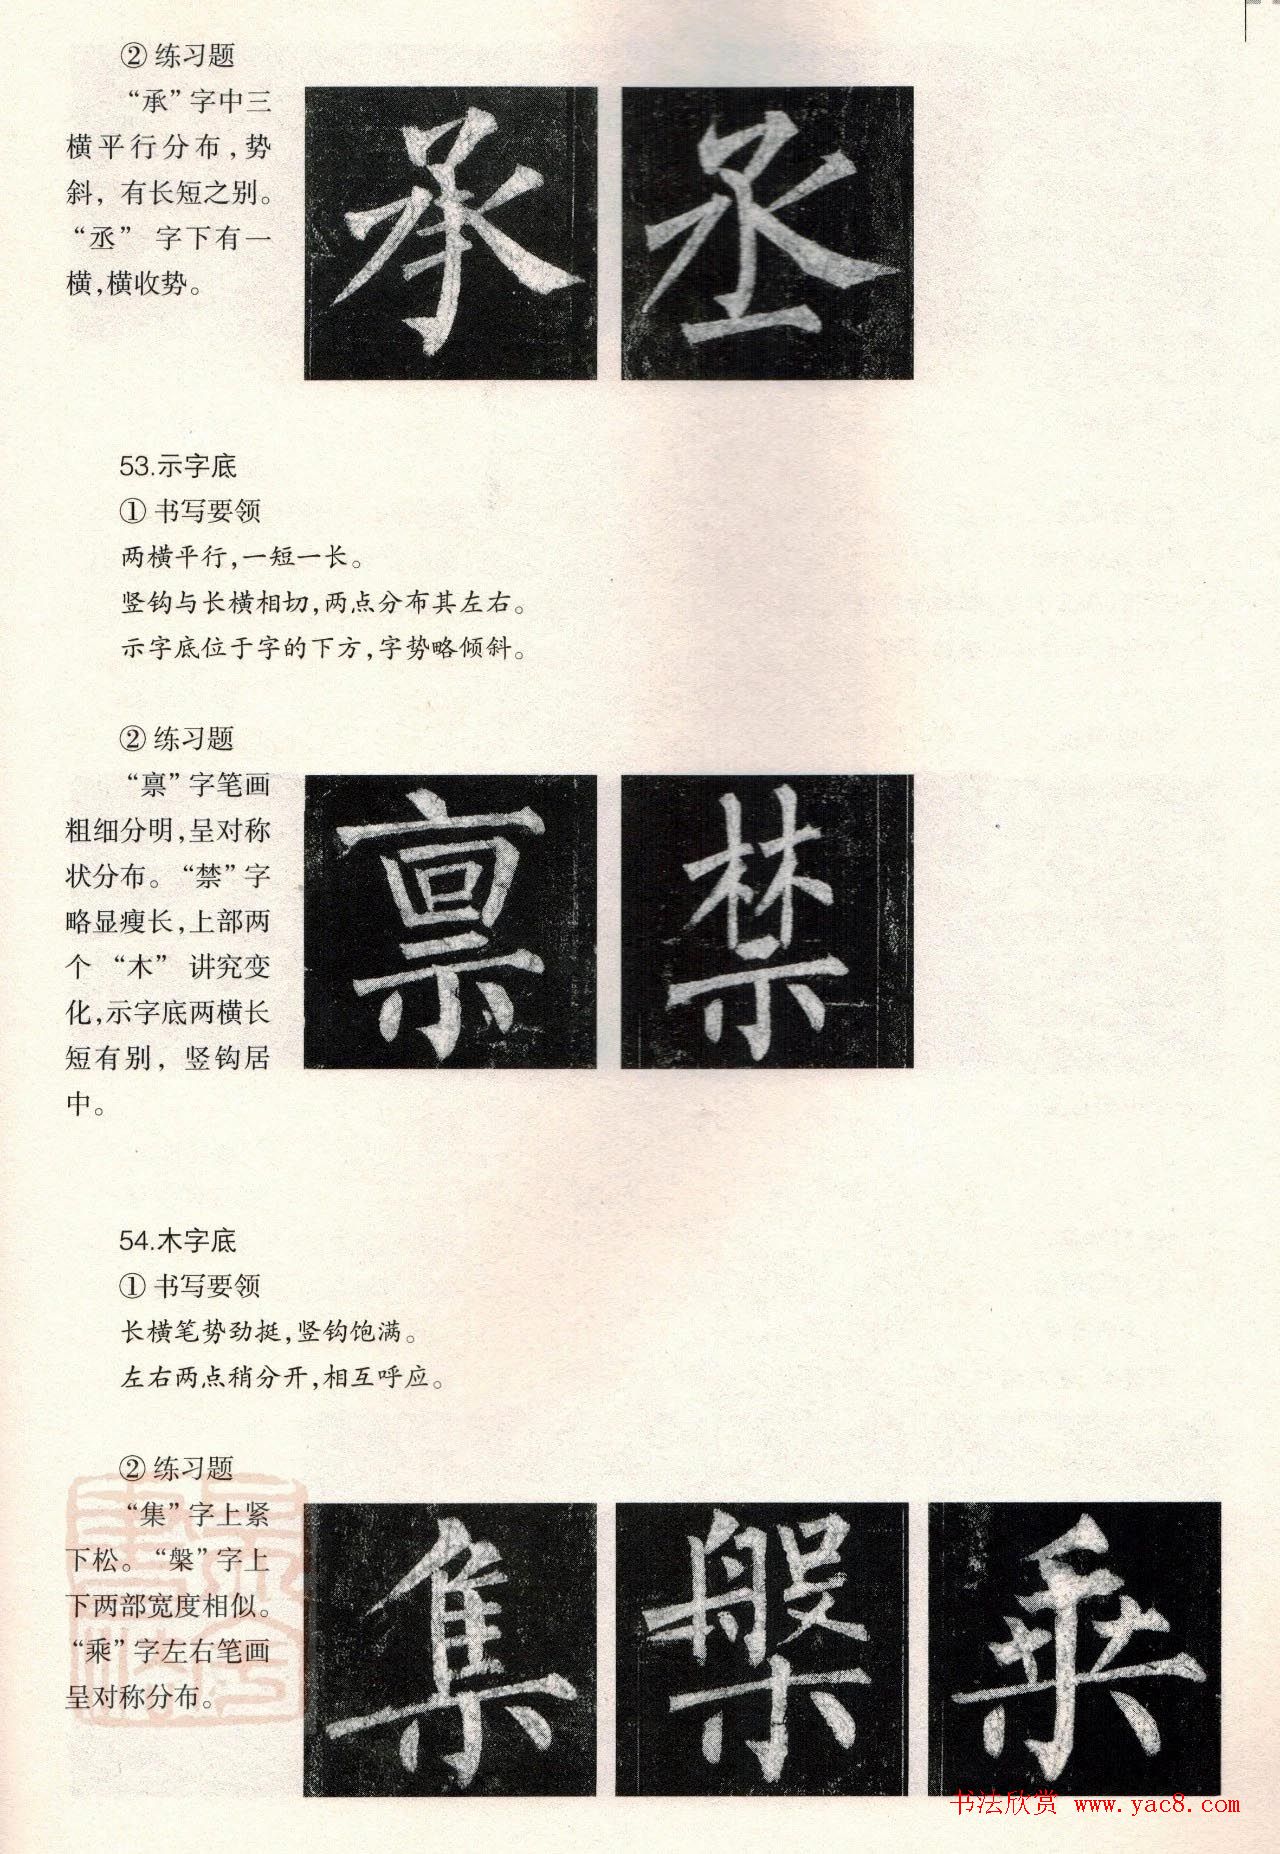 ② 练习题
“承”字中三
横平行分布,势
斜,有长短之别。
“丞” 字下有一
横,横收势。
承 丞
53.示字底
① 书写要领
两横平行,一短一长。
竖钩与长横相切,两点分布其左右。
示字底位于字的下方,字势略倾斜。
② 练习题
“禀”字笔画
粗细分明,呈对称
状分布。“禁”字
略显瘦长,上部两
个 “木” 讲究变
化,示字底两横长
短有别, 竖钩居
中。
禀 禁
54.木字底
① 书写要领
长横笔势劲挺,竖钩饱满。
左右两点稍分开,相互呼应。
② 练习题
“集”字上紧
下松。“槃”字上
下两部宽度相似。
“乘”字左右笔画
呈对称分布。
集 槃 乘
书法欣赏 www.yac8.com